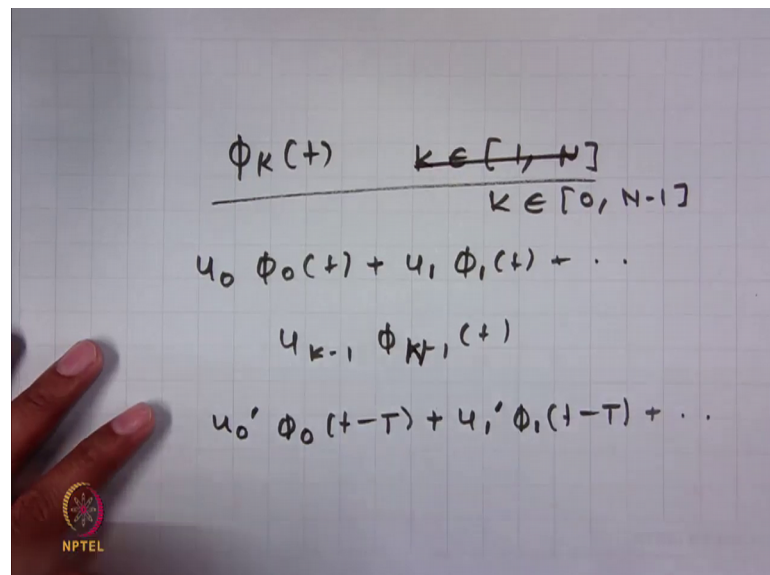 ϕ_K(t) K ∈ [1, N]
K ∈ [0, N-1]
u_0 ϕ_0(t) + u_1 ϕ_1(t) + ..
u_{K-1} ϕ_{K-1}(t)
u_0' ϕ_0(t-T) + u_1' ϕ_1(t-T) + ..
NPTEL